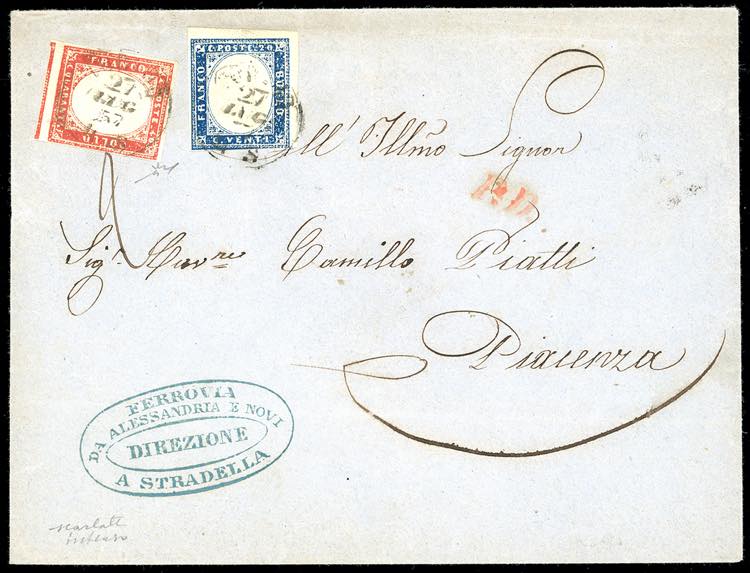 FRANCO
C. POSTE 40
BOLLO
C. QUARANTA
27
LUG
57
C. POSTE 20
FRANCO
BOLLO
C. VENTI
27
LUG
S
All' Illmo Signor
P.D.
Sigr. Cavre Camillo Piatti
Piacenza
FERROVIA
DA ALESSANDRIA E NOVI
DIREZIONE
A STRADELLA
scarlatto
intenso